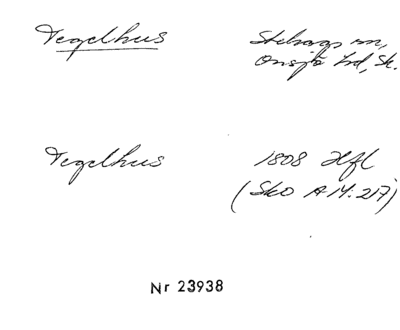 Tegelhus Stehags sn,
Onsjö hd, Sk.
Tegelhus 1808 Hfl
(Sko A IV:217)
Nr 23938